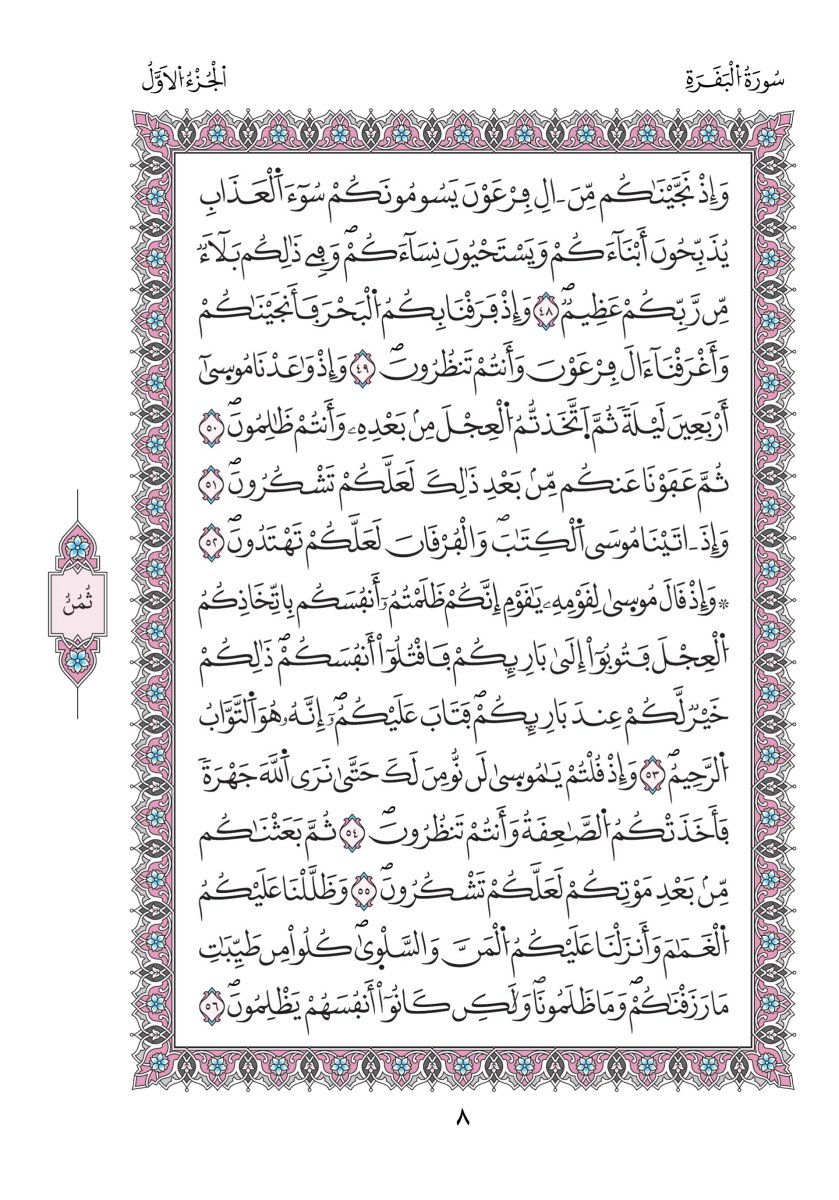 سُورَةُ اُ۬لْبَقَرَةِ
اَ۬لْجُزْءُ اُ۬لَاوَّلُ
وَإِذْ نَجَّيْنَٰكُم مِّنَ ـ اٰلِ فِرْعَوْنَ يَسُومُونَكُمْ سُوٓءَ اَ۬لْعَذَابِ
يُذَبِّحُونَ أَبْنَآءَكُمْ وَيَسْتَحْيُونَ نِسَآءَكُمْۖ وَفِے ذَٰلِكُم بَلَآءٞ
مِّن رَّبِّكُمْ عَظِيمٞۖ ٤٨ وَإِذْ فَرَقْنَا بِكُمُ اُ۬لْبَحْرَ فَأَنجَيْنَٰكُمْ
وَأَغْرَقْنَآ ءَالَ فِرْعَوْنَ وَأَنتُمْ تَنظُرُونَۖ ٤٩ وَإِذْ وَٰعَدْنَا مُوس۪ىٰٓ
أَرْبَعِينَ لَيْلَةٗ ثُمَّ اَ۪تَّخَذتُّمُ اُ۬لْعِجْلَ مِنۢ بَعْدِهِۦ وَأَنتُمْ ظَٰلِمُونَۖ ٥٠
ثُمَّ عَفَوْنَا عَنكُم مِّنۢ بَعْدِ ذَٰلِكَ لَعَلَّكُمْ تَشْكُرُونَۖ ٥١
وَإِذَ ـ اٰتَيْنَا مُوسَى اَ۬لْكِتَٰبَۖ وَالْفُرْقَانَ لَعَلَّكُمْ تَهْتَدُونَۖ ٥٢
۞وَإِذْ قَالَ مُوس۪ىٰ لِقَوْمِهِۦ يَٰقَوْمِ إِنَّكُمْ ظَلَمْتُمُۥٓ أَنفُسَكُم بِاتِّخَاذِكُمُ
اُ۬لْعِجْلَ فَتُوبُوٓاْ إِلَىٰ بَارِئِكُمْ فَاقْتُلُوٓاْ أَنفُسَكُمْۖ ذَٰلِكُمْ
خَيْرٞ لَّكُمْ عِندَ بَارِئِكُمْۖ فَتَابَ عَلَيْكُمُۥٓۖ إِنَّهُۥ هُوَ اَ۬لتَّوَّابُ
اُ۬لرَّحِيمُۖ ٥٣ وَإِذْ قُلْتُمْ يَٰمُوس۪ىٰ لَن نُّومِنَ لَكَ حَتَّىٰ نَرَى اَ۬للَّهَ جَهْرَةٗ
فَأَخَذَتْكُمُ اُ۬لصَّٰعِقَةُ وَأَنتُمْ تَنظُرُونَۖ ٥٤ ثُمَّ بَعَثْنَٰكُم
مِّنۢ بَعْدِ مَوْتِكُمْ لَعَلَّكُمْ تَشْكُرُونَۖ ٥٥ وَظَلَّلْنَا عَلَيْكُمُ
اُ۬لْغَمَٰمَ وَأَنزَلْنَا عَلَيْكُمُ اُ۬لْمَنَّ وَالسَّلْو۪ىٰۖ كُلُواْ مِن طَيِّبَٰتِ
مَا رَزَقْنَٰكُمْۖ وَمَا ظَلَمُونَاۖ وَلَٰكِن كَانُوٓاْ أَنفُسَهُمْ يَظْلِمُونَۖ ٥٦
ثُمُنُ
٨